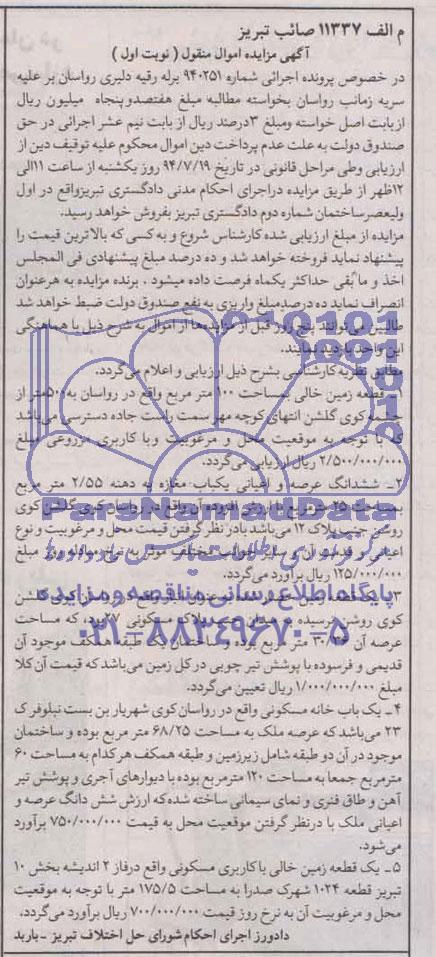 م الف ۱۱۳۳۷ صائب تبریز
آگهی مزایده اموال منقول ( نوبت اول )
در خصوص پرونده اجرائی شماره ۹۴۰۲۵۱ برله رقیه دلیری رواسان بر علیه
سریه زمانی رواسان بخواسته مطالبه مبلغ هفتصدو پنجاه میلیون ریال
از بابت اصل خواسته ومبلغ ۳درصد ریال از بابت نیم عشر اجرائی در حق
صندوق دولت به علت عدم پرداخت دین اموال محکوم علیه توقیف دین از
ارزیابی وطی مراحل قانونی در تاریخ ۹۴/۷/۱۹ روز یکشنبه از ساعت ۱۱الی
۱۲ظهر از طریق مزایده دراجرای احکام مدنی دادگستری تبریزواقع در اول
ولیعصرساختمان شماره دوم دادگستری تبریز بفروش خواهد رسید.
مزایده از مبلغ ارزیابی شده کارشناس شروع و به کسی که بالاترین قیمت را
پیشنهاد نماید فروخته خواهد شد و ده درصد مبلغ پیشنهادی فی المجلس
اخذ و مابقی حداکثر یکماه فرصت داده میشود . برنده مزایده به هرعنوان
انصراف نماید ده درصدمبلغ واریزی به نفع صندوق دولت ضبط خواهد شد
طالبین می‌توانند پنج روز قبل از مزایده‌ها از اموال به شرح ذیل با هماهنگی
این واحد بازدید نمایند.
مطابق نظریه کارشناسی بشرح ذیل ارزیابی و اعلام می‌گردد.
۱- قطعه زمین خالی بمساحت ۱۰۰ متر مربع واقع در رواسان به ۵۰۰متر از
کوی گلشن انتهای کوچه مهر سمت راست جاده دسترسی می‌باشد
که با توجه به موقعیت محل و مرغوبیت وبا کاربری مزروعی مبلغ
۲/۵۰۰/۰۰۰/۰۰۰ ریال ارزیابی می‌گردد.
۲- ششدانگ عرصه و اعیانی یکباب مغازه به دهنه ۲/۵۵ متر مربع
بمساحت ۲۵ مترمربع با ارزش افزوده آن واقع در رواسان کوی گلشن کوی
روشن جنب پلاک ۱۲ می‌باشد بادر نظر گرفتن قیمت محل و مرغوبیت و نوع
اعیانی و قدمت آن و سایر جوانب مختلف موثر به نرخ مبلغ
۱۲۵/۰۰۰/۰۰۰ ریال برآورد می‌گردد.
۳- گلشن
کوی روشن نرسیده به میدان جنب پلاک مسکونی ۲۷ که مساحت
عرصه آن متر مربع بوده و ساختمان یک طبقه همکف موجود آن
قدیمی و فرسوده با پوشش تیر چوبی در کل زمین می‌باشد که قیمت آن کلا
مبلغ ۱/۰۰۰/۰۰۰/۰۰۰ ریال تعیین می‌گردد.
۴- یک باب خانه مسکونی واقع در رواسان کوی شهریار بن بست نیلوفر ک
۲۳ می‌باشد که عرصه ملک به مساحت ۶۸/۲۵ متر مربع بوده و ساختمان
موجود در آن دو طبقه شامل زیرزمین و طبقه همکف هرکدام به مساحت ۶۰
مترمربع جمعا به مساحت ۱۲۰ مترمربع بوده با دیوارهای آجری و پوشش تیر
آهن و طاق فنری و نمای سیمانی ساخته شده که ارزش شش دانگ عرصه و
اعیانی ملک با درنظر گرفتن موقعیت محل به قیمت ۷۵۰/۰۰۰/۰۰۰ برآورد
می‌شود.
۵- یک قطعه زمین خالی با کاربری مسکونی واقع درفاز ۲ اندیشه بخش ۱۰
تبریز قطعه ۱۰۲۴ شهرک صدرا به مساحت ۱۷۵/۵ متر با توجه به موقعیت
محل و مرغوبیت آن به نرخ روز قیمت ۷۰۰/۰۰۰/۰۰۰ ریال برآورد می‌گردد.
دادورز اجرای احکام شورای حل اختلاف تبریز - باربد
ParsNamadData
پایگاه اطلاع رسانی مناقصه و مزایده
۰۲۱-۸۸۳۴۹۶۷۰-۵